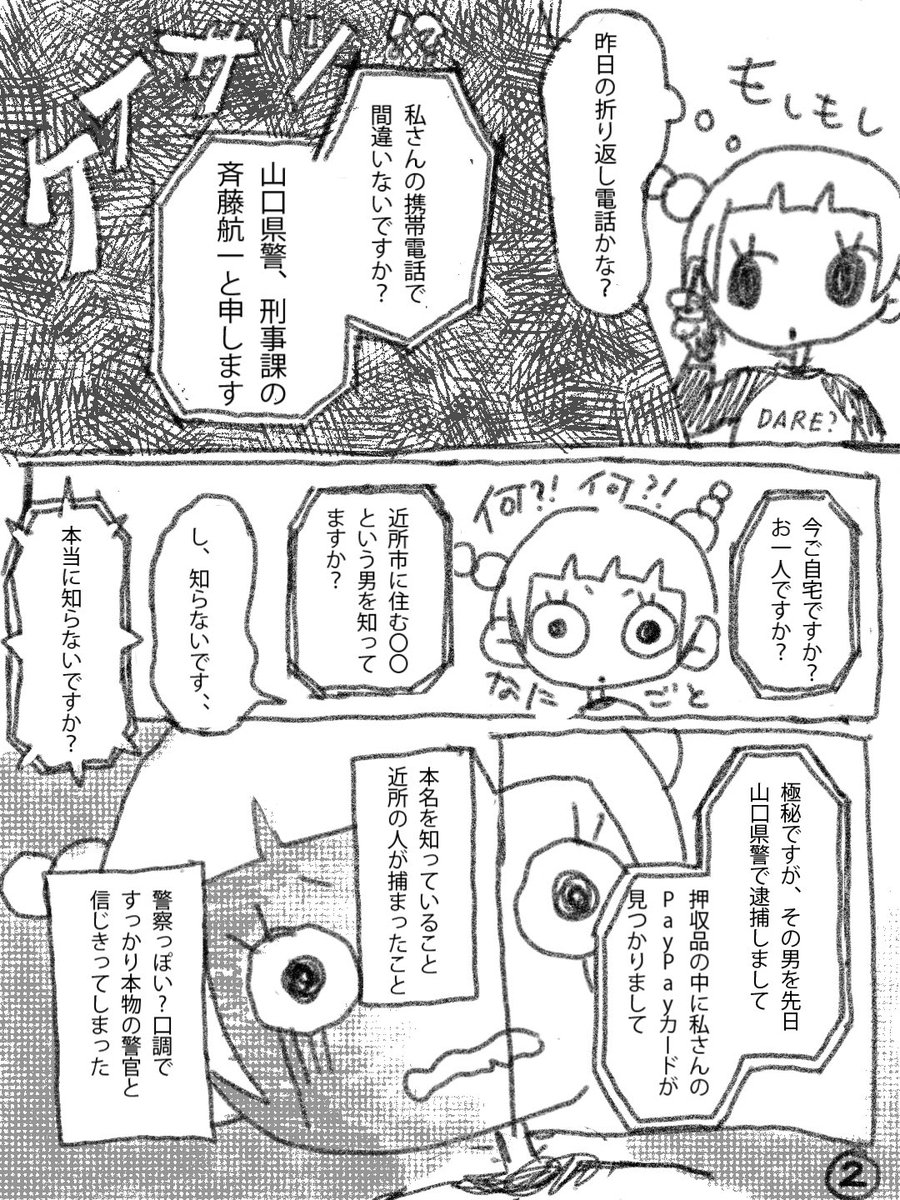 もしもし
昨日の折り返し電話かな？
DARE?
私さんの携帯電話で
間違いないですか？
山口県警、刑事課の
斉藤航一と申します
ケイサツ!?
今ご自宅ですか？
お一人ですか？
何?!何?!
なにごと
近所市に住む〇〇
という男を知って
ますか？
し、知らないです、
本当に知らないですか？
極秘ですが、その男を先日
山口県警で逮捕しまして
押収品の中に私さんの
PayPayカードが
見つかりまして
本名を知っていること
近所の人が捕まったこと
警察っぽい？口調で
すっかり本物の警官と
信じきってしまった
2